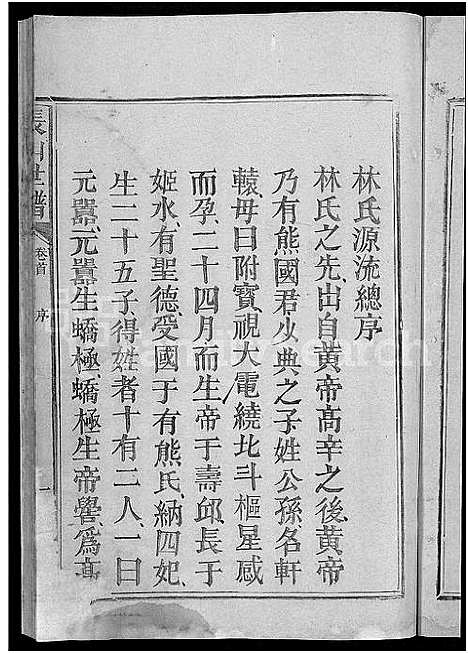 林氏源流總序
林氏之先、出自黃帝高辛之後、黃帝
乃有熊國君少典之子姓公孫、名軒
轅、母曰附寶、視大電繞北斗樞星感
而孕、二十四月而生帝于壽邱、長于
姬水、有聖德、受國于有熊氏、納四妃、
生二十五子、得姓者十有二人、一曰
元囂、元囂生蟜極、蟜極生帝嚳、爲高
世譜
卷首
序
一